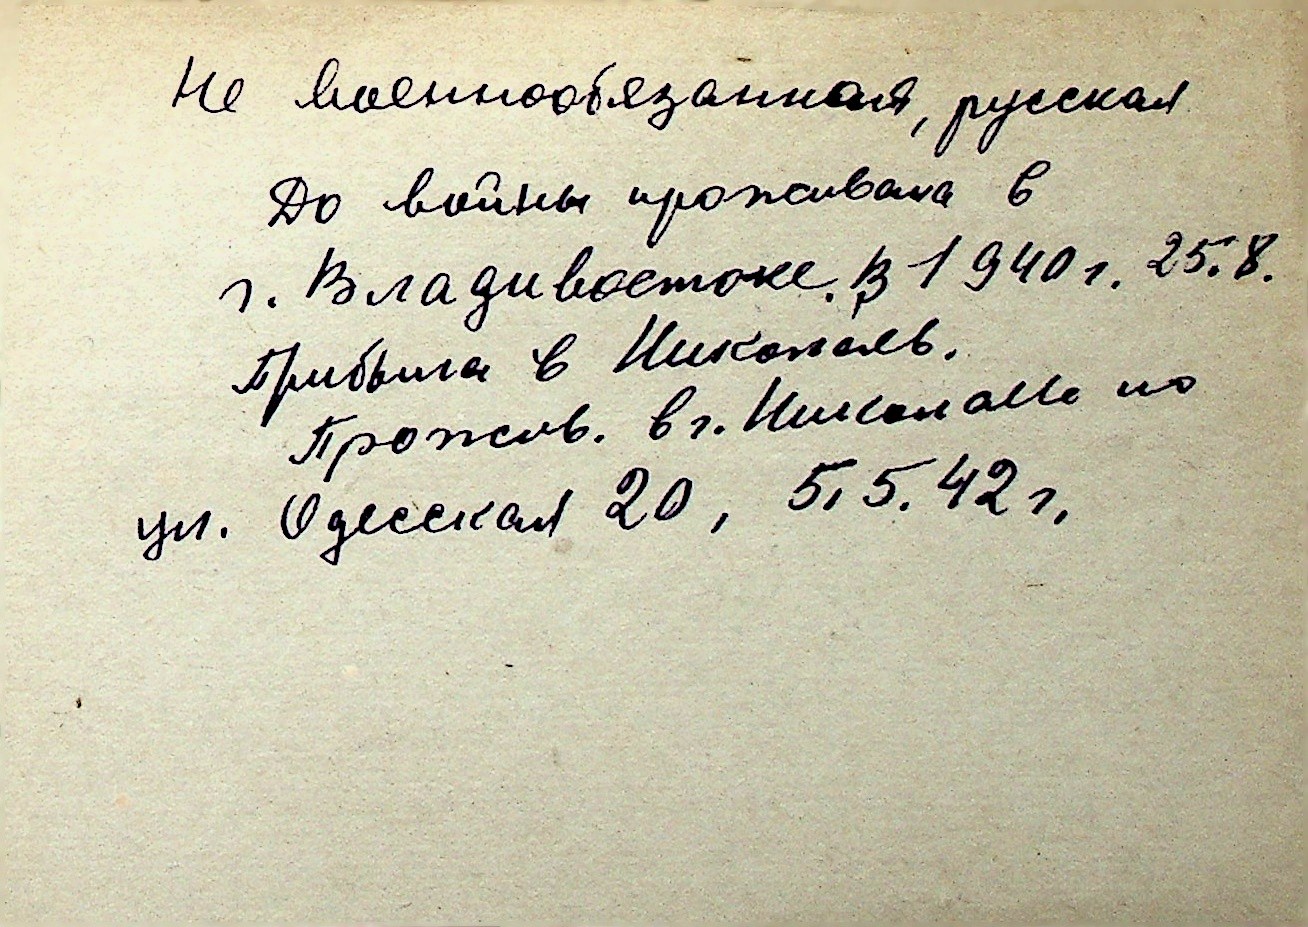 Не военнообязанная, русская
До войны проживала в
г. Владивостоке. В 1940 г. 25.8.
Прибыла в Никополь.
Прожив. в г. Никополе по
ул. Одесская 20, 5.5.42 г.